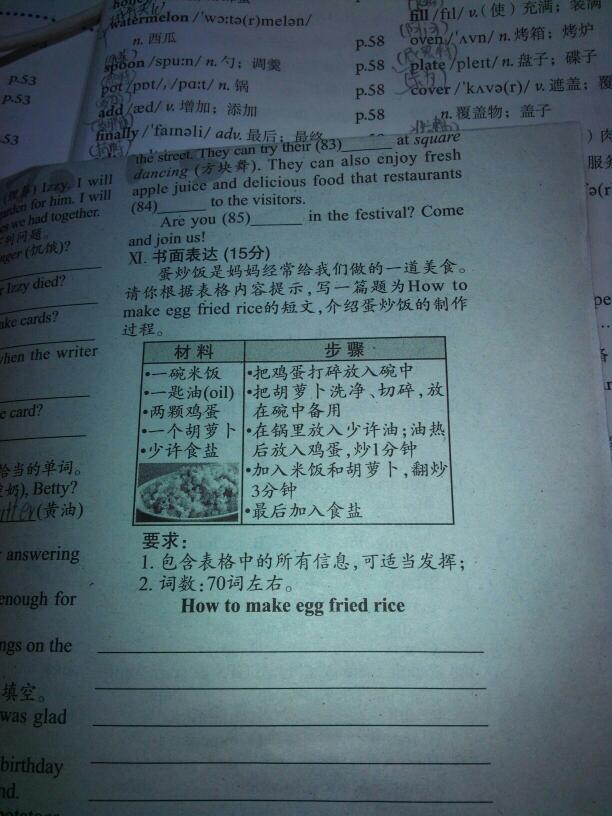 watermelon /'wɔːtə(r)melən/
n. 西瓜
spoon /spuːn/ n. 勺；调羹
pot /pɒt/, /pɑːt/ n. 锅
add /æd/ v. 增加；添加
finally /'faɪnəli/ adv. 最后；最终
p.53
p.53
p.58
p.58
p.58
fill /fɪl/ v.（使）充满；装满
oven /'ʌvn/ n. 烤箱；烤炉
plate /pleɪt/ n. 盘子；碟子
cover /'kʌvə(r)/ v. 遮盖；覆
n. 覆盖物；盖子
the street. They can try their (83)______ at square
dancing (方块舞). They can also enjoy fresh
apple juice and delicious food that restaurants
(84)______ to the visitors.
Are you (85)______ in the festival? Come
and join us!
Ⅺ. 书面表达 (15分)
蛋炒饭是妈妈经常给我们做的一道美食。
请你根据表格内容提示,写一篇题为How to
make egg fried rice的短文,介绍蛋炒饭的制作
过程。
材料
•一碗米饭
•一匙油(oil)
•两颗鸡蛋
•一个胡萝卜
•少许食盐
步骤
•把鸡蛋打碎放入碗中
•把胡萝卜洗净、切碎,放
在碗中备用
•在锅里放入少许油;油热
后放入鸡蛋,炒1分钟
•加入米饭和胡萝卜,翻炒
3分钟
•最后加入食盐
要求:
1. 包含表格中的所有信息,可适当发挥;
2. 词数:70词左右。
How to make egg fried rice
Izzy. I will
for him. I will
es we had together.
(饥饿)?
Izzy died?
ake cards?
when the writer
e card?
恰当的单词。
奶), Betty?
(黄油)
answering
enough for
ngs on the
填空。
was glad
birthday
nd.